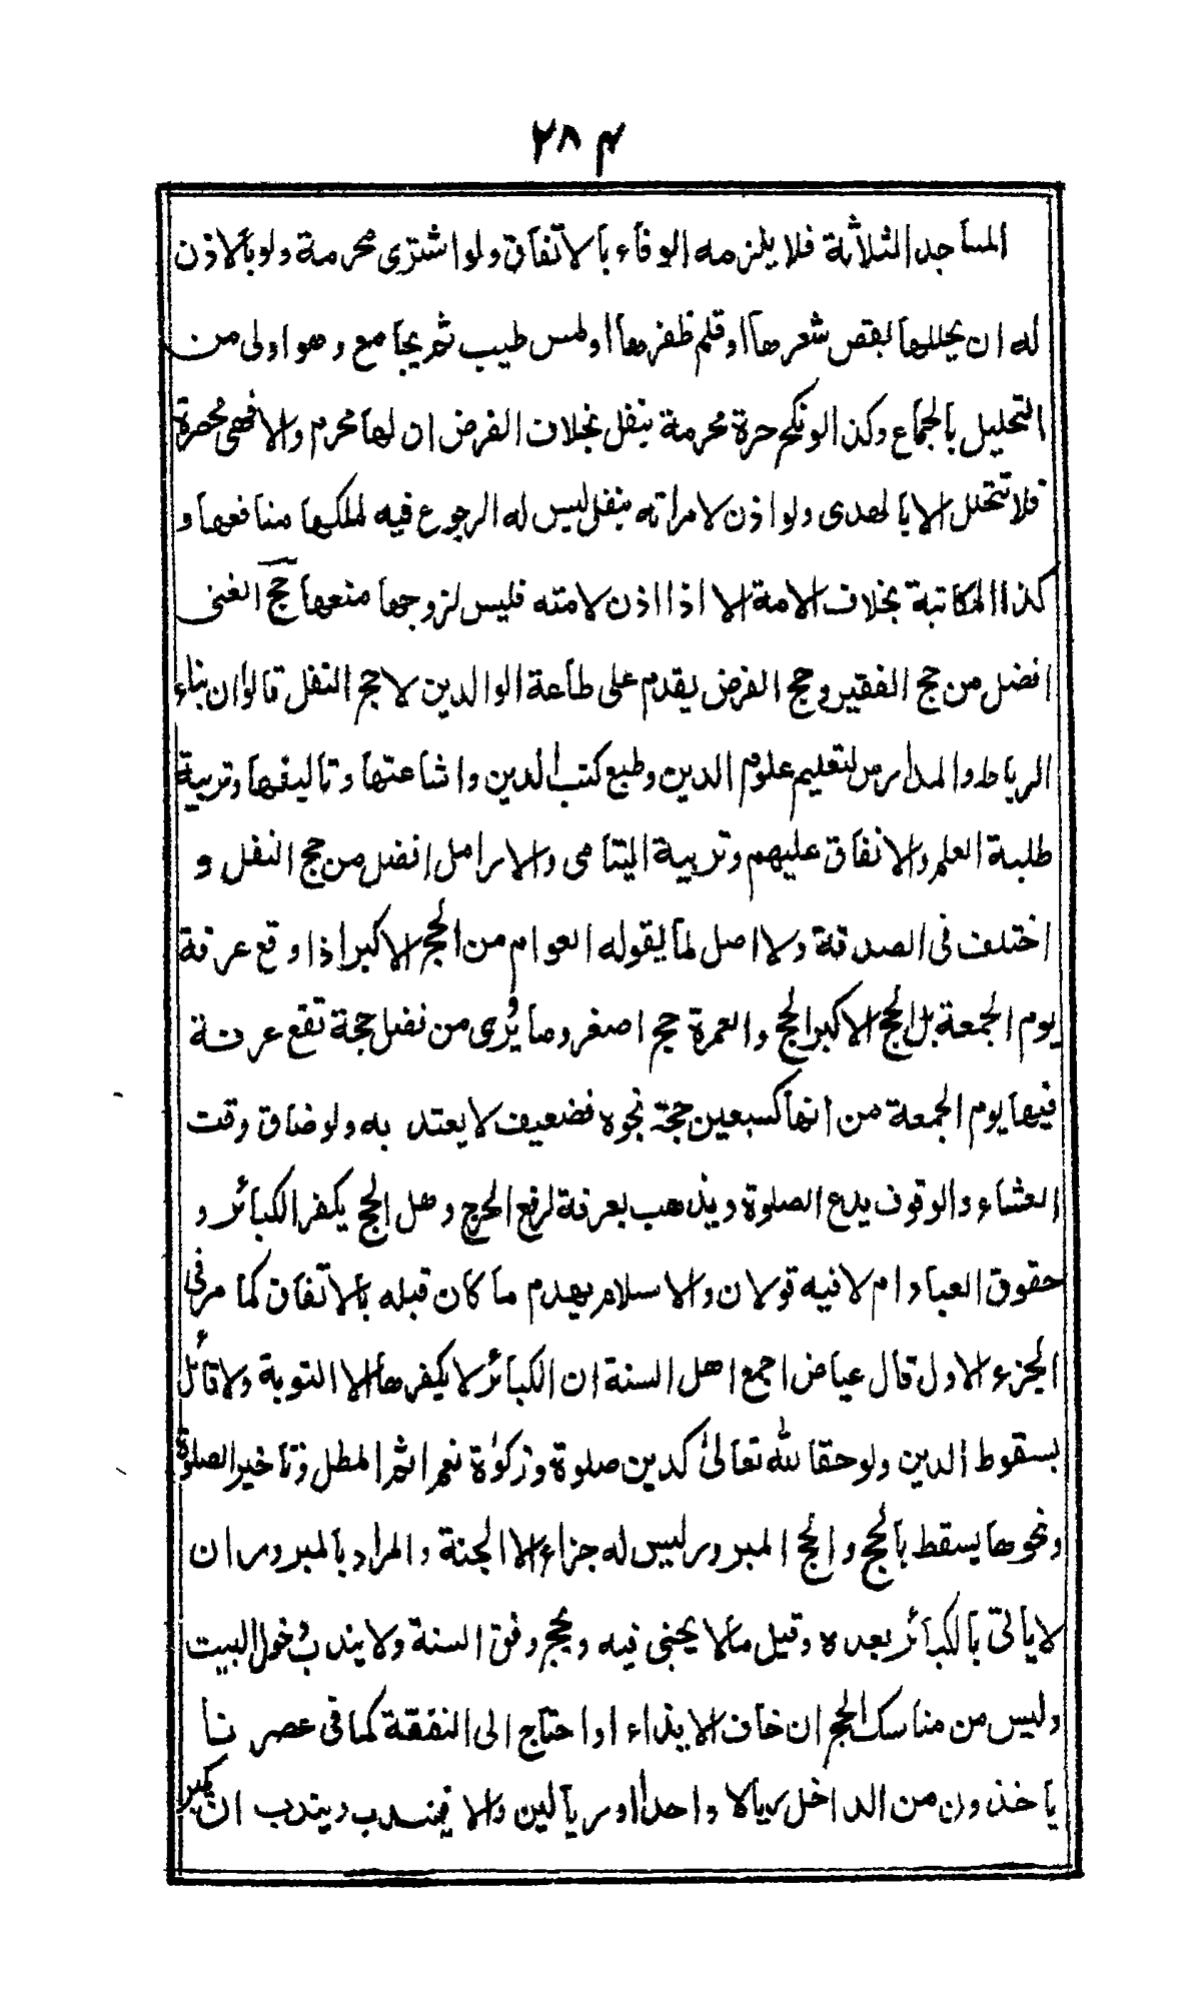 ٢٨٤
المساجد الثلاثة فلا يلزمه الوفاء بالاتفاق ولو اشترى محرمة ولو بالاذن
له ان يحللها بقص شعرها او قلم ظفرها او لمس طيب ثم يجامع وهو اولى من
التحليل بالجماع وكذا لو نكح حرة محرمة بنفل بخلاف الفرض ان لها محرم والا فهي محصرة
فلا تتحلل الا بالهدى ولو اذن لامراته بنفل ليس له الرجوع فيه لملكها منافعها و
كذا المكاتبة بخلاف الامة الا اذا اذن لامته فليس لزوجها منعها حج الغنى
افضل من حج الفقير وحج الفرض يقدم على طاعة الوالدين لا حج النفل قالوا ان بناء
الرباط والمدارس لتعليم علوم الدين وطبع كتب الدين واشاعتها وتاليفها وتربية
طلبة العلم والانفاق عليهم وتربية اليتامى والارامل افضل من حج النفل و
اختلف فى الصدقة ولا اصل لما يقوله العوام من الحج الاكبر اذا وقع عرفة
يوم الجمعة بل الحج الاكبر الحج والعمرة حج اصغر وما يُرْوى من فضل حجة تقع عرفة
فيها يوم الجمعة من انها كسبعين حجة نحوه فضعيف لا يعتد به ولو ضاق وقت
العشاء والوقوف يدع الصلوة ويذهب بعرفة لرفع الحرج وهل الحج يكفر الكبائر و
حقوق العباد ام لا فيه قولان والاسلام يهدم ما كان قبله بالاتفاق كما مر فى
الجزء الاول قال عياض اجمع اهل السنة ان الكبائر لا يكفرها الا التوبة ولا قائل
بسقوط الدين ولو حقا لله تعالىٰ كدين صلوة وزكوٰة نعم اثم المطل وتاخير الصلوة
ونحوها يسقط بالحج والحج المبرور ليس له جزاء الا الجنة والمراد بالمبرور ان
لا ياتى بالكبائر بعده وقيل مالا يجنى فيه ويحج وفق السنة ولا يندب دخول البيت
وليس من مناسك الحج ان خاف الايذاء او احتاج الى النفقة كما فى عصرنا
ياخذون من الداخل ريالا واحدا او ريالين والا فيندب ويندب ان يكبر